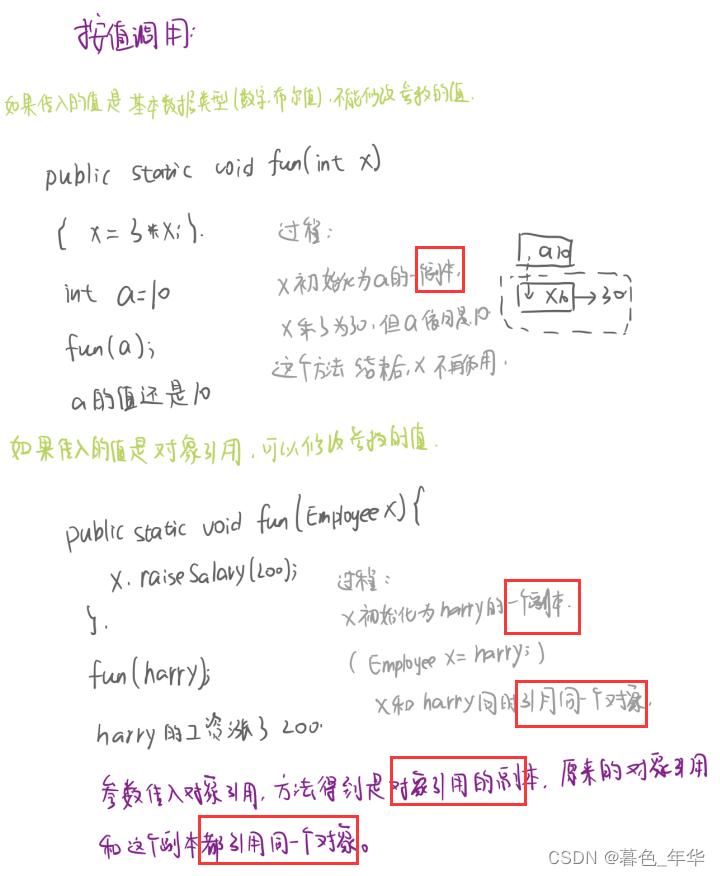 按值调用:
如果传入的值是基本数据类型(数字.布尔值).不能修改参数的值.
public static void fun(int x)
{ x = 3*x; }.
过程:
a 10
int a=10
x初始化为a的一个副本.
x 10 → 30
fun(a);
x乘3为30,但a值仍是10
a的值还是10
这个方法结束后,x不再使用.
如果传入的值是对象引用,可以修改参数的值.
public static void fun(Employee x){
x.raiseSalary(200);
过程:
}.
x初始化为harry的一个副本.
fun(harry);
( Employee x= harry; )
x和harry同时引用同一个对象.
harry的工资涨了200.
参数传入对象引用,方法得到是对象引用的副本,原来的对象引用
和这个副本都引用同一个对象。
CSDN @暮色_年华